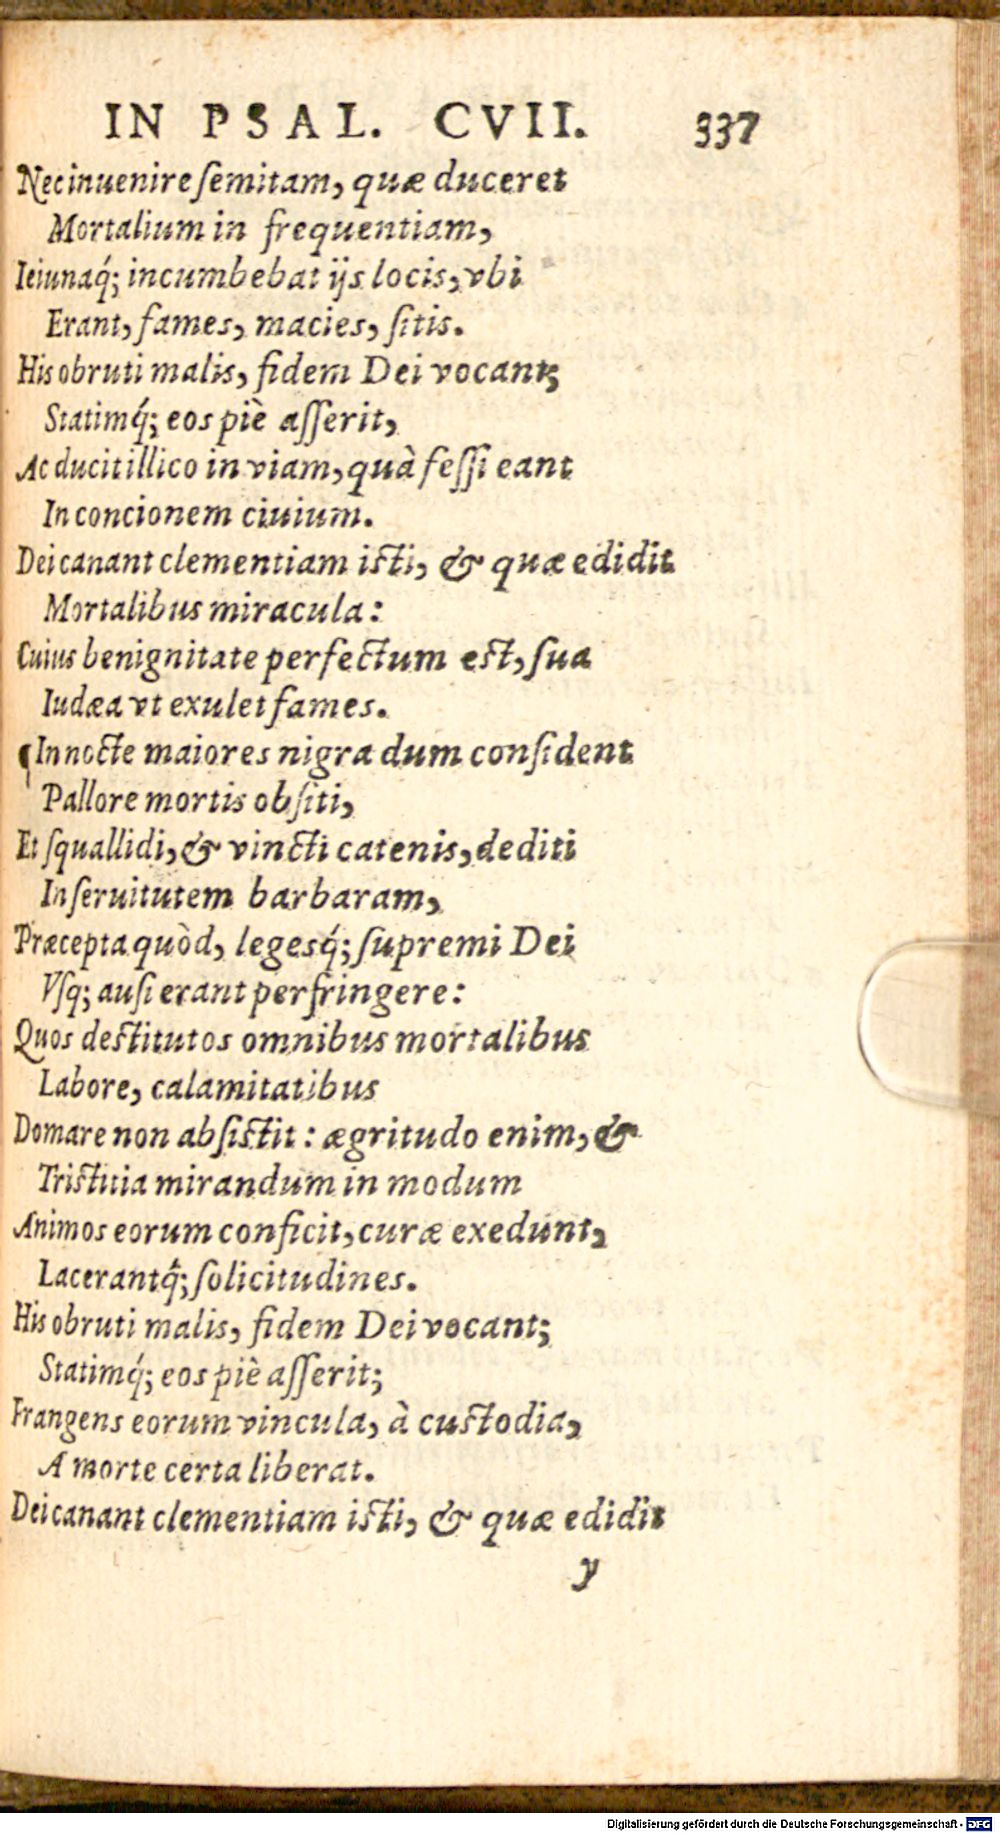 IN PSAL. CVII. 337
Nec inuenire ſemitam, quæ duceret
Mortalium in frequentiam,
Ieiunaq́; incumbebat ijs locis, vbi
Erant, fames, macies, ſitis.
His obruti malis, fidem Dei vocant;
Statimq́; eos piè aſſerit,
Ac ducit illico in viam, quà feſſi eant
In concionem ciuium.
Dei canant clementiam iſti, & quæ edidit
Mortalibus miracula:
Cuius benignitate perfectum eſt, ſua
Iudæa vt exulet fames.
¶ In nocte maiores nigra dum conſident
Pallore mortis obſiti,
Et ſquallidi, & vincti catenis, dediti
In ſeruitutem barbaram,
Præcepta quòd, legesq́; ſupremi Dei
Vſq; auſi erant perfringere:
Quos deſtitutos omnibus mortalibus
Labore, calamitatibus
Domare non abſiſtit: ægritudo enim, &
Triſtitia mirandum in modum
Animos eorum conficit, curæ exedunt,
Lacerantq́; ſolicitudines.
His obruti malis, fidem Dei vocant;
Statimq́; eos piè aſſerit;
Frangens eorum vincula, à cuſtodia,
A morte certa liberat.
Dei canant clementiam iſti, & quæ edidit
y
Digitalisierung gefördert durch die Deutsche Forschungsgemeinschaft - DFG